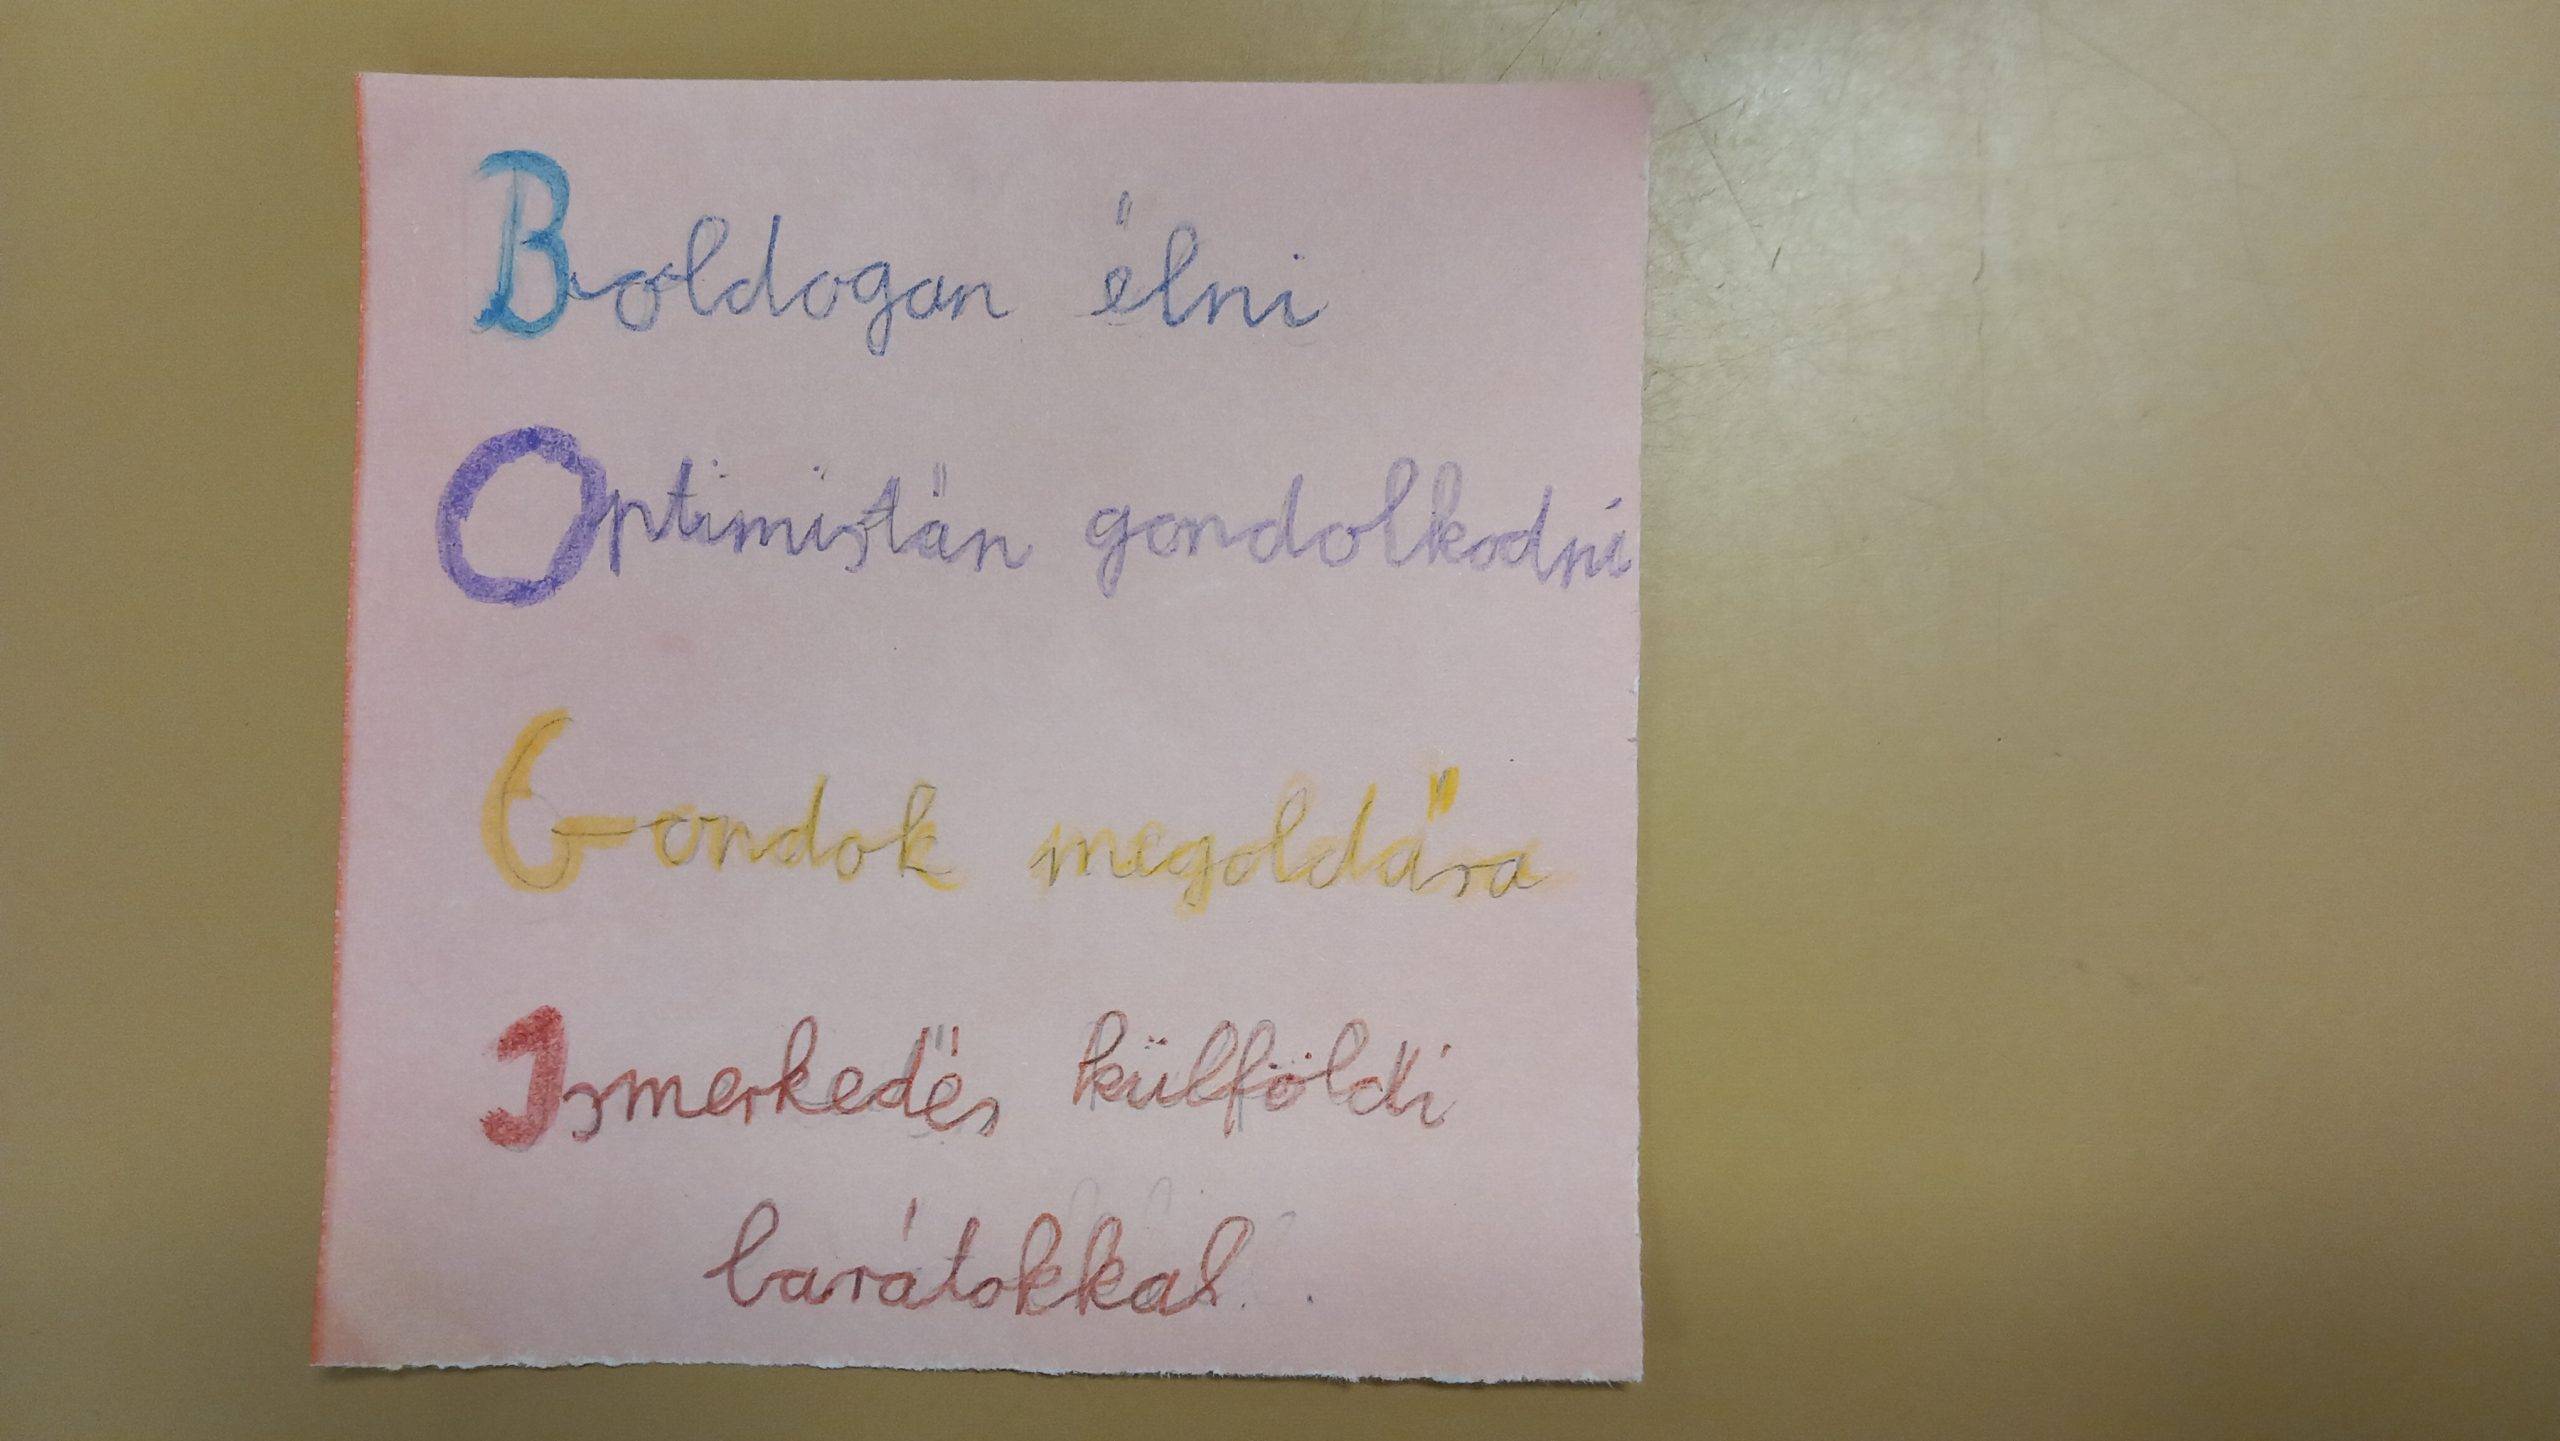 Boldogan élni
Optimistán gondolkodni
Gondok megoldára
Ismerkedés külföldi
barátokkal.